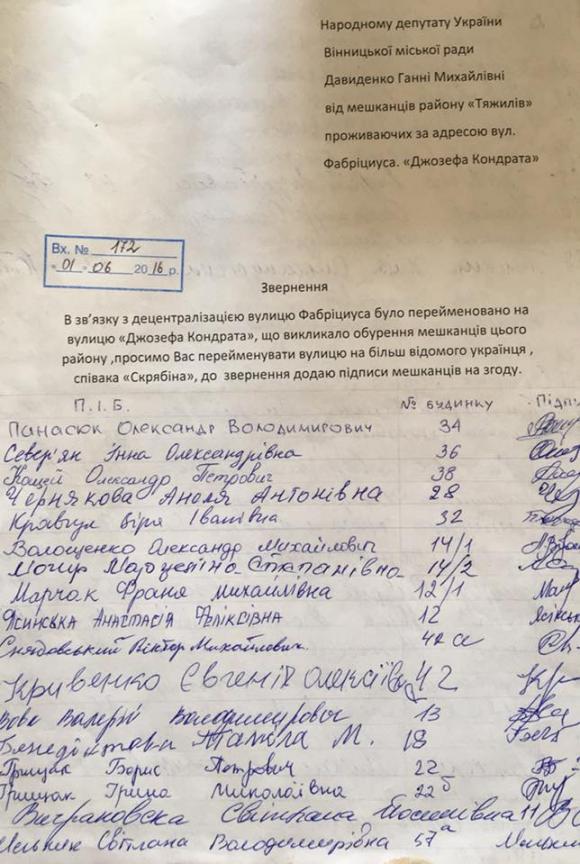 Народному депутату України
Вінницької міської ради
Давиденко Ганні Михайлівні
від мешканців району «Тяжилів»
проживаючих за адресою вул.
Фабріциуса. «Джозефа Кондрата»
Вх. № 172
"01" 06 2016 р.
Звернення
В зв'язку з децентралізацією вулицю Фабріциуса було перейменовано на
вулицю «Джозефа Кондрата», що викликало обурення мешканців цього
району ,просимо Вас перейменувати вулицю на більш відомого українця ,
співака «Скрябіна», до звернення додаю підписи мешканців на згоду.
П.І.Б. № будинку Підпи
Панасюк Олександр Володимирович 34
Север'ян Інна Олександрівна 36
Кощей Олександр Петрович 38
Чернякова Анеля Антонівна 28
Кравчук Віра Іванівна 32
Волощенко Олександр Михайлович 14/1
Могир Магделіна Степанівна 14/2
Марчак Франя Михайлівна 12/1
Ясинська Анастасія Феліксівна 12
Снядовський Віктор Михайлович 42а
Кривенко Євгенія Олексіївна 42
Вовк Валерій Володимирович 13
Бенедіктова Таміла М. 18
Грищак Борис Петрович 22
Грищак Ірина Миколаївна 22б
Виграновська Світлана Йосипівна 11
Мельник Світлана Володимирівна 57а